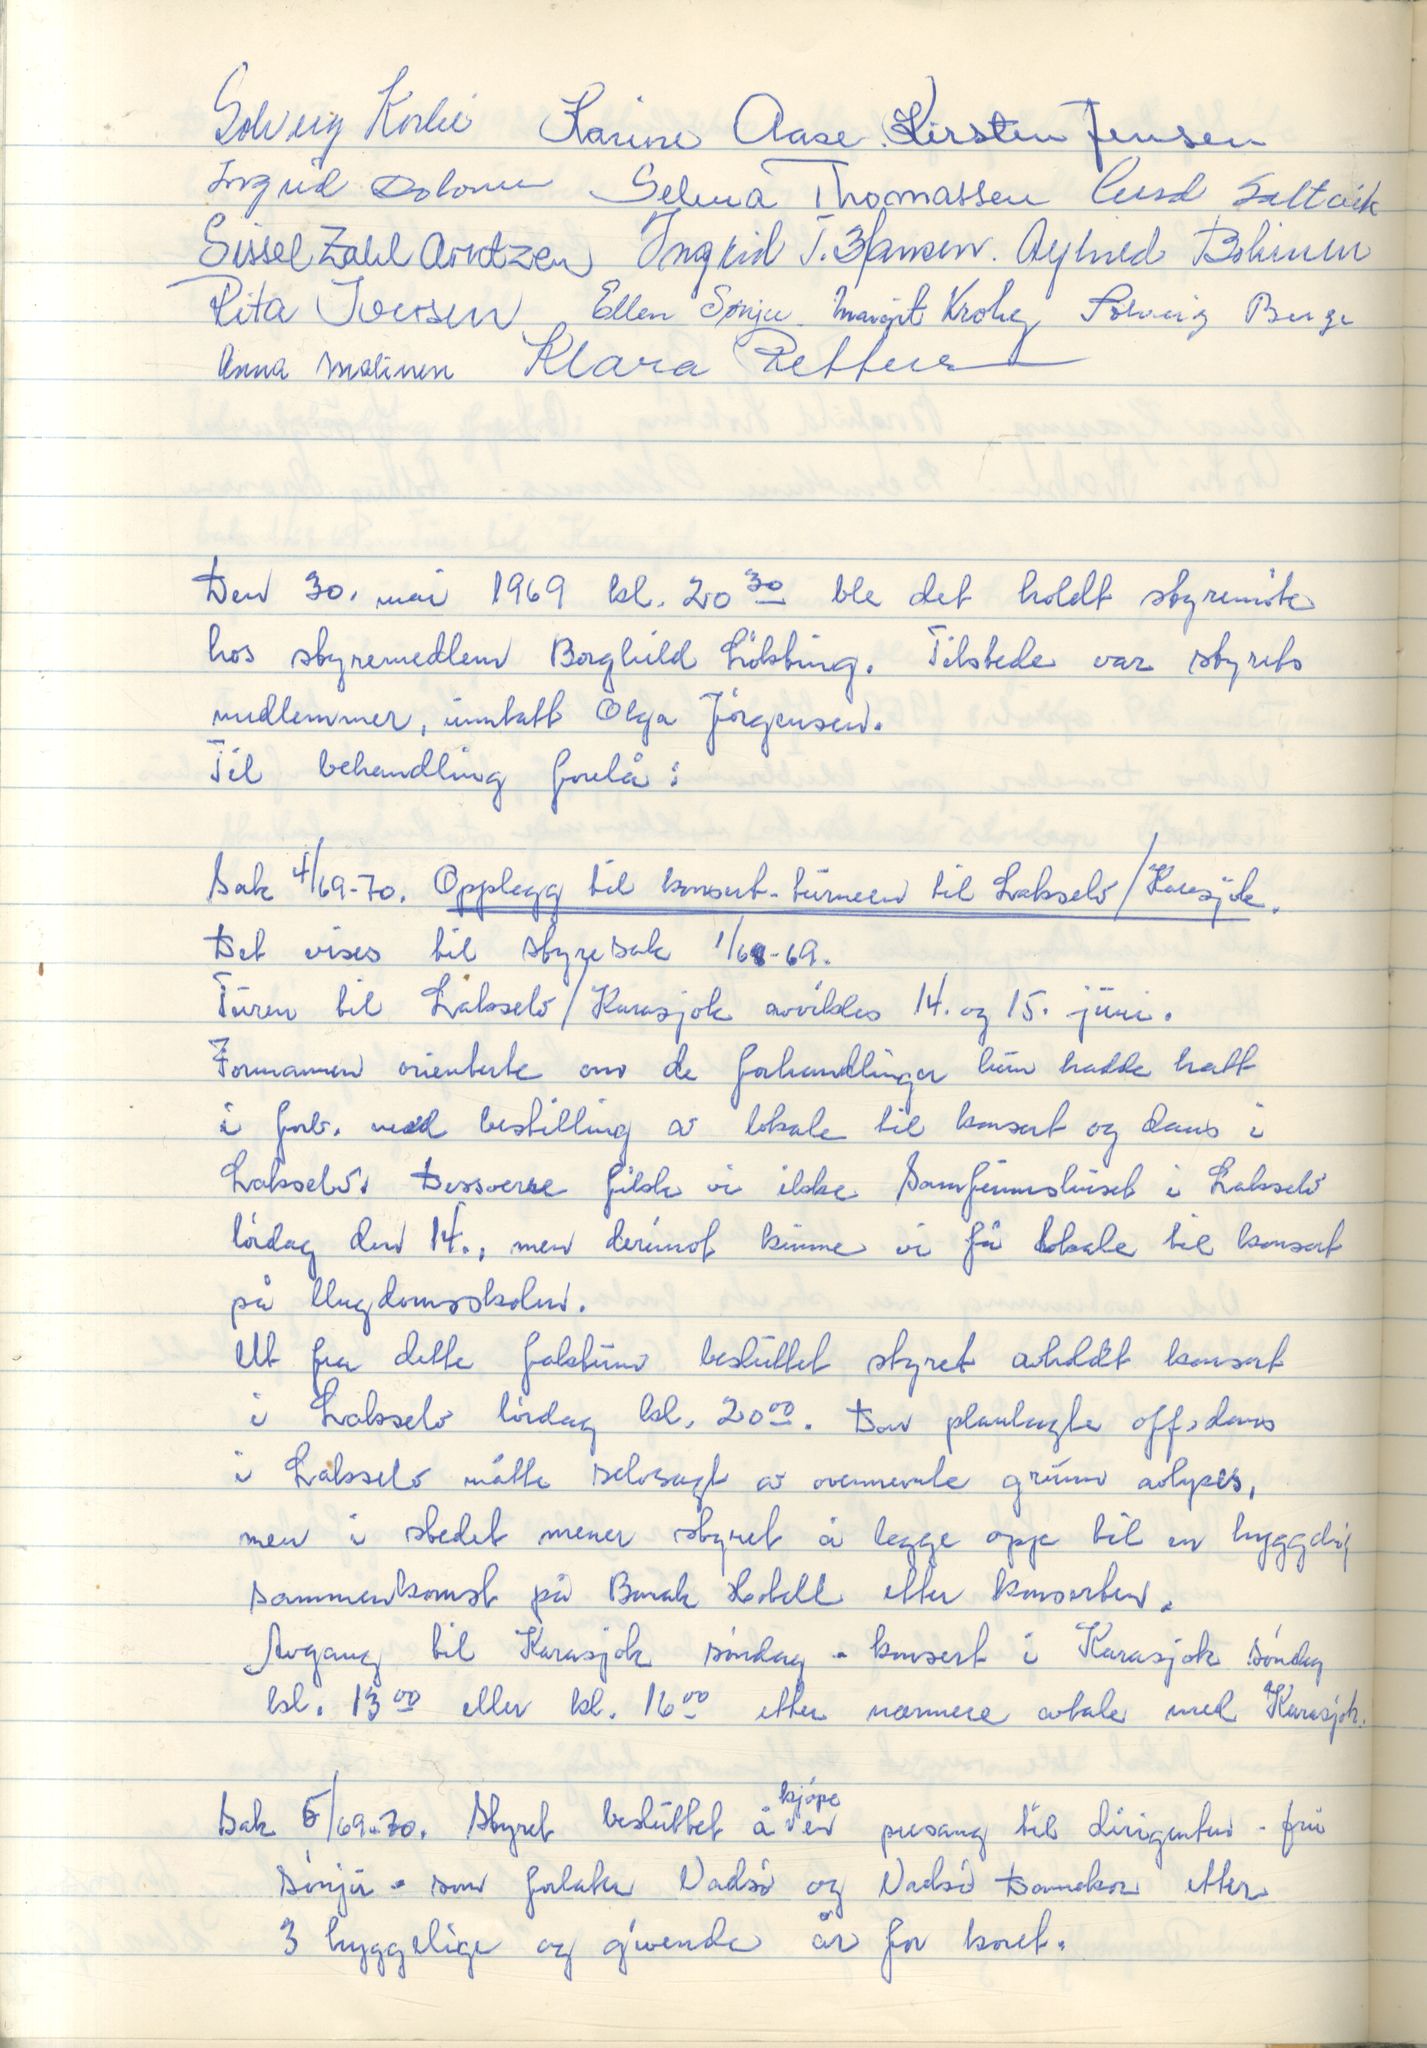 Solveig Karine Aase. Kirsten Jensen
Ingrid Selma Thomassen
Sissel Zahl Arntzen Ingrid T. Hansen.
Rita Iversen Ellen Sønju Margit Krohg Solveig Berge
Anna Malinen Klara
Den 30. mai 1969 kl. 20 30 ble det holdt styremöte
hos styremedlem Borghild Lökting. Tilstede var styrets
medlemmer, unntatt Olga Jörgensen.
Til behandling forelå:
Sak 4/69-70. Opplegg til konsert-turneen til Lakselv/Karasjok.
Det vises til styresak 1/68-69.
Turen til Lakselv/Karasjok avvikles 14. og 15. juni.
Formannen orienterte om de forhandlinger hun hadde hatt
i forb. med bestilling av lokale til konsert og dans i
Lakselv. Dessverre fikk vi ikke Samfunnshuset i Lakselv
lördag den 14., men derimot kunne vi få lokale til konsert
på Ungdomsskolen.
Ut fra dette faktum besluttet styret avholdt konsert
i Lakselv lördag kl. 20 00. Den planlagte off. dans
i Lakselv måtte selvsagt av ovennevnte grunn avlyses,
men i stedet mener styret å legge opp til en hyggelig
sammenkomst på Banak Hotell etter konserten.
Avgang til Karasjok söndag - konsert i Karasjok söndag
kl. 13 00 eller kl. 16 00 etter nærmere avtale med Karasjok.
Sak 5/69-70. Styret besluttet å kjöpe en presang til dirigenten - fru
Sönju - som forlater Vadsö og Vadsö Damekor etter
3 hyggelige og givende år for koret.